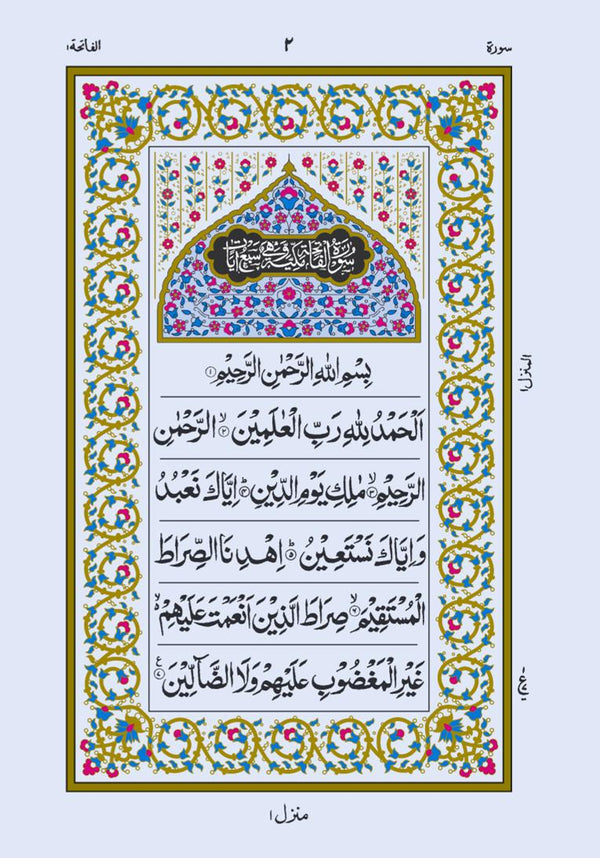 سورة ٢ الفاتحة ١
سورة الفاتحة مكية وهي سبع ايات
بِسْمِ اللهِ الرَّحْمٰنِ الرَّحِيْمِ ﴿١﴾
اَلْحَمْدُ لِلّٰهِ رَبِّ الْعٰلَمِيْنَ ۙ﴿٢﴾ الرَّحْمٰنِ
الرَّحِيْمِ ۙ﴿٣﴾ مٰلِكِ يَوْمِ الدِّيْنِ ؕ﴿٤﴾ اِيَّاكَ نَعْبُدُ
وَاِيَّاكَ نَسْتَعِيْنُ ؕ﴿٥﴾ اِهْدِنَا الصِّرَاطَ
الْمُسْتَقِيْمَ ۙ﴿٦﴾ صِرَاطَ الَّذِيْنَ اَنْعَمْتَ عَلَيْهِمْ ۙ
غَيْرِ الْمَغْضُوْبِ عَلَيْهِمْ وَلَا الضَّآلِّيْنَ ﴿٧﴾ ع
المنزل ١
منزل ١